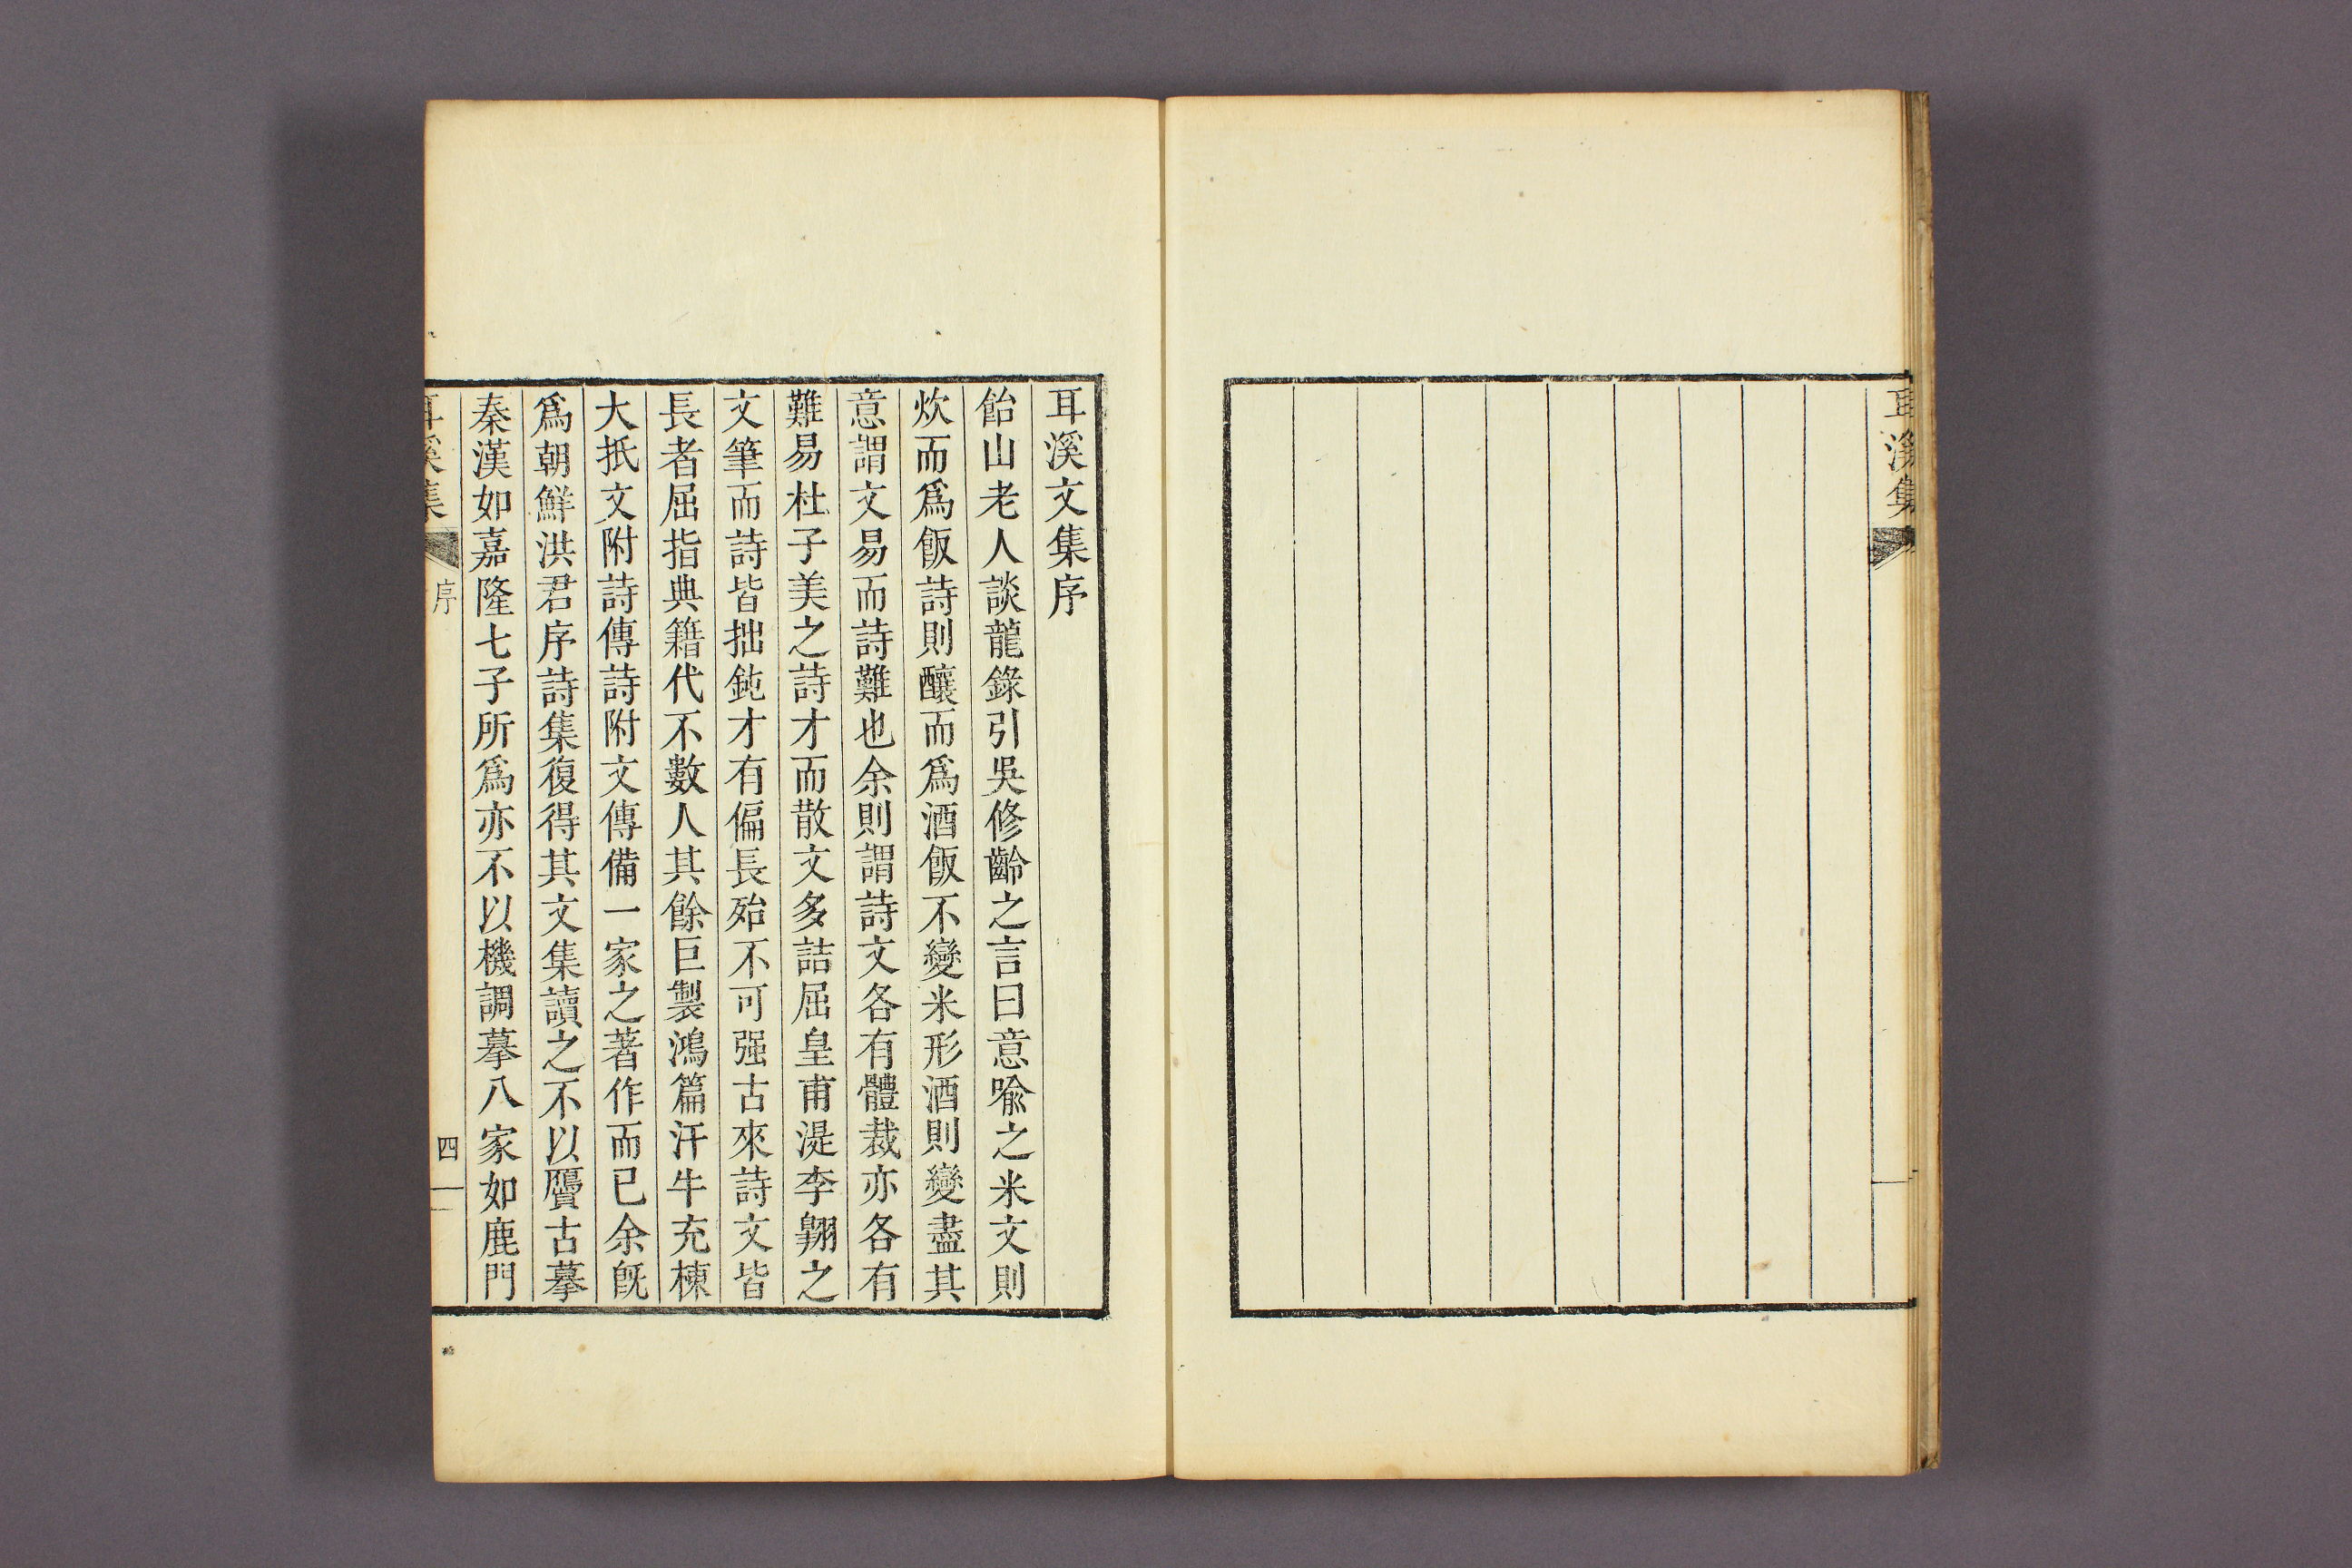 耳溪集
耳溪文集序
飴山老人談龍錄引吳修齡之言曰意喩之米文則
炊而爲飯詩則釀而爲酒飯不變米形酒則變盡其
意謂文易而詩難也余則謂詩文各有體裁亦各有
難易杜子美之詩才而散文多詰屈皇甫湜李翺之
文筆而詩皆拙鈍才有偏長殆不可强古來詩文皆
長者屈指典籍代不數人其餘巨製鴻篇汗牛充棟
大抵文附詩傳詩附文傳備一家之著作而已余旣
爲朝鮮洪君序詩集復得其文集讀之不以贋古摹
秦漢如嘉隆七子所爲亦不以機調摹八家如鹿門
耳溪集
序
四